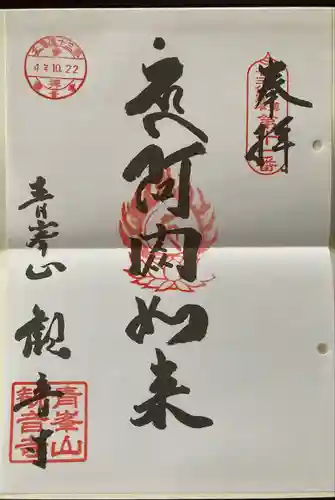 奉拝
阿閦如来
4.10.22
青峯山 観音寺
青峯山
観音寺